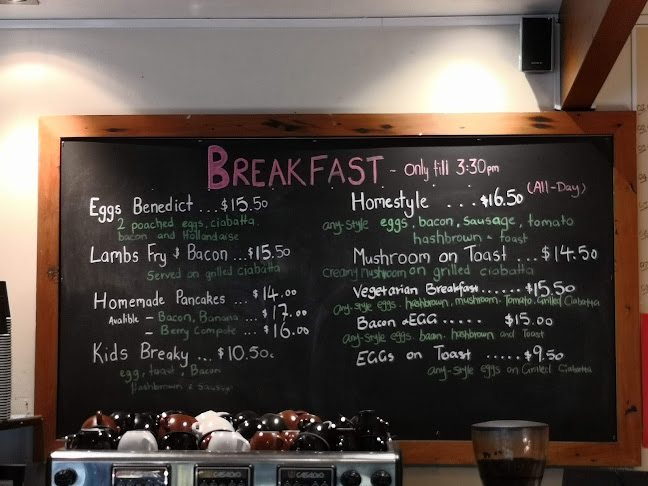 BREAKFAST - only till 3:30pm
Eggs Benedict ... $15.50
2 poached eggs, ciobatta.
bacon and Hollandaise
Lambs Fry & Bacon ... $15.50
Served on grilled ciabatta
Homemade Pancakes ... $14.00
Avalible - Bacon, Banana .... $17.00
- Berry Compote ... $16.00
Kids Breaky ... $10.50c
egg, toast, Bacon
Hashbrown & Sausage
Homestyle .... $16.50 (All-Day)
any-style eggs, bacon, sausage, tomato
hashbrown & toast
Mushroom on Toast ... $14.50
creamy mushroom on grilled ciabatta
Vegetarian Breakfast...... $15.50
any-style eggs. hashbrown, mushroom. Tomato, Grilled Ciabatta
Bacon & EGG ..... $15.00
any-style eggs. bacon. hashbrown and Toast
EGGs on Toast ..... $9.50
any-style eggs on Grilled Ciabatta
CASADIO CASADIO